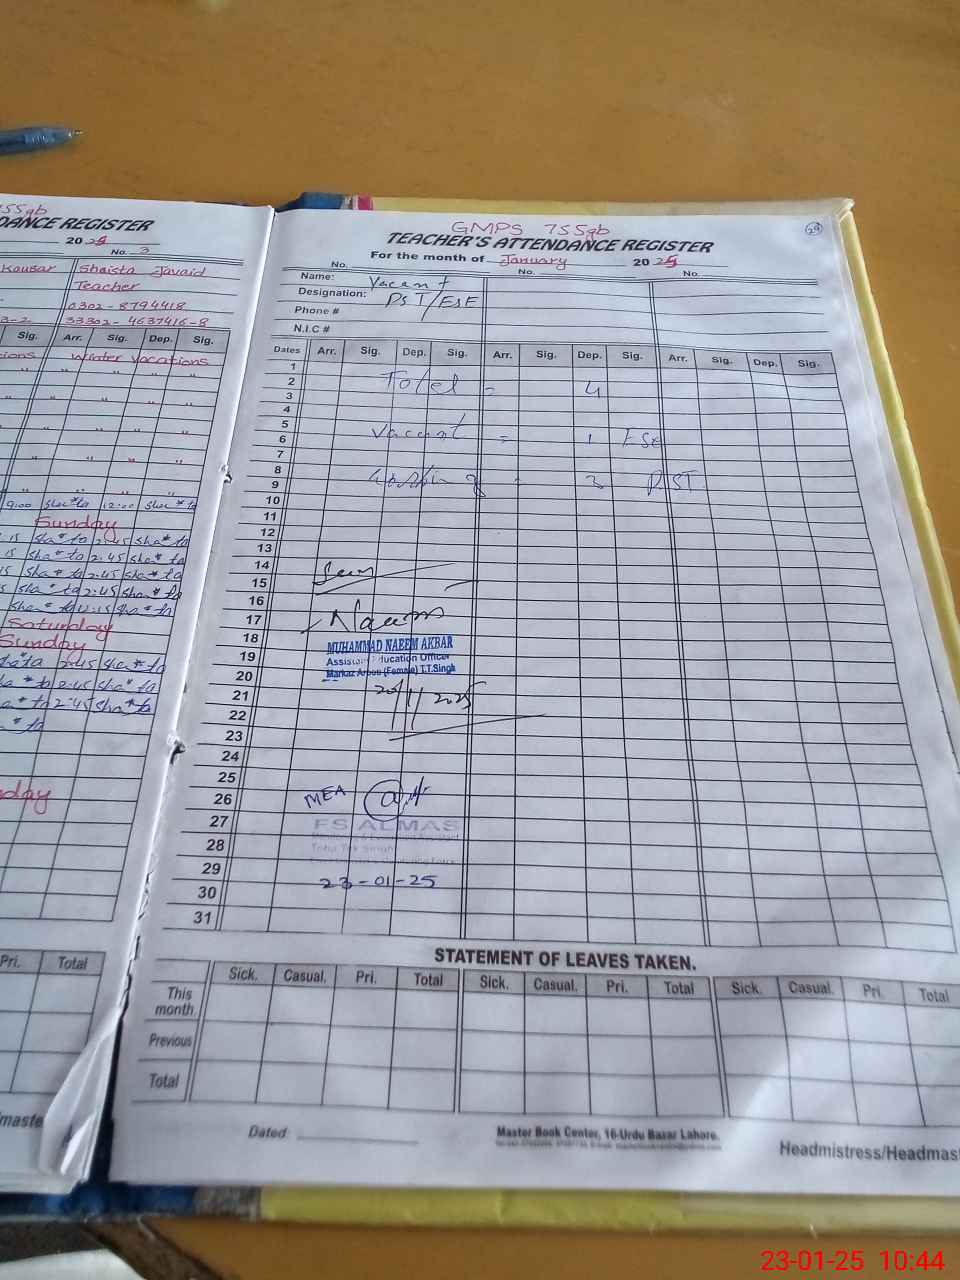 755gb
DANCE REGISTER
20 25
No. 3
Kousar Shaista Javaid
Teacher
0302-8794418
3-2 33302-4637416-8
Sig. Arr. Sig. Dep. Sig.
Winter vacations
9:00 sha*ta 12:00 sha*ta
Sunday
15 sha*ta 2:45 sha*ta
15 sha*ta 2:45 sha*ta
15 sha*ta 2:45 sha*ta
sha*ta 2:45 sha*ta
sha*ta 12:15 sha*ta
Saturday
Sunday
2:45 sha*ta
2:45 sha*ta
2:45 sha*ta
Pri. Total
GMPS 755gb
29
TEACHER'S ATTENDANCE REGISTER
For the month of January 20 25
No. No. No.
Name: Vacant
Designation: PST/ESE
Phone #
N.I.C #
Dates Arr. Sig. Dep. Sig. Arr. Sig. Dep. Sig. Arr. Sig. Dep. Sig.
1
2 Total = 4
3
4
5
6 Vacant = 1 ESE
7
8
9 Working = 3 PST
10
11
12
13
14
15 Seen
16
17 Naeem
18 MUHAMMAD NAEEM AKBAR
19 Assistant Education Officer
20 Markaz Arouti (Female) T.T.Singh
21 20/1/2025
22
23
24
25
26 MEA
27 FS ALMAS
28 Toba Tek Singh
29
30 23-01-25
31
STATEMENT OF LEAVES TAKEN.
Sick. Casual. Pri. Total Sick. Casual. Pri. Total Sick. Casual. Pri. Total
This month
Previous
Total
Dated:
Master Book Center, 16-Urdu Bazar Lahore.
Headmistress/Headmas
23-01-25 10:44